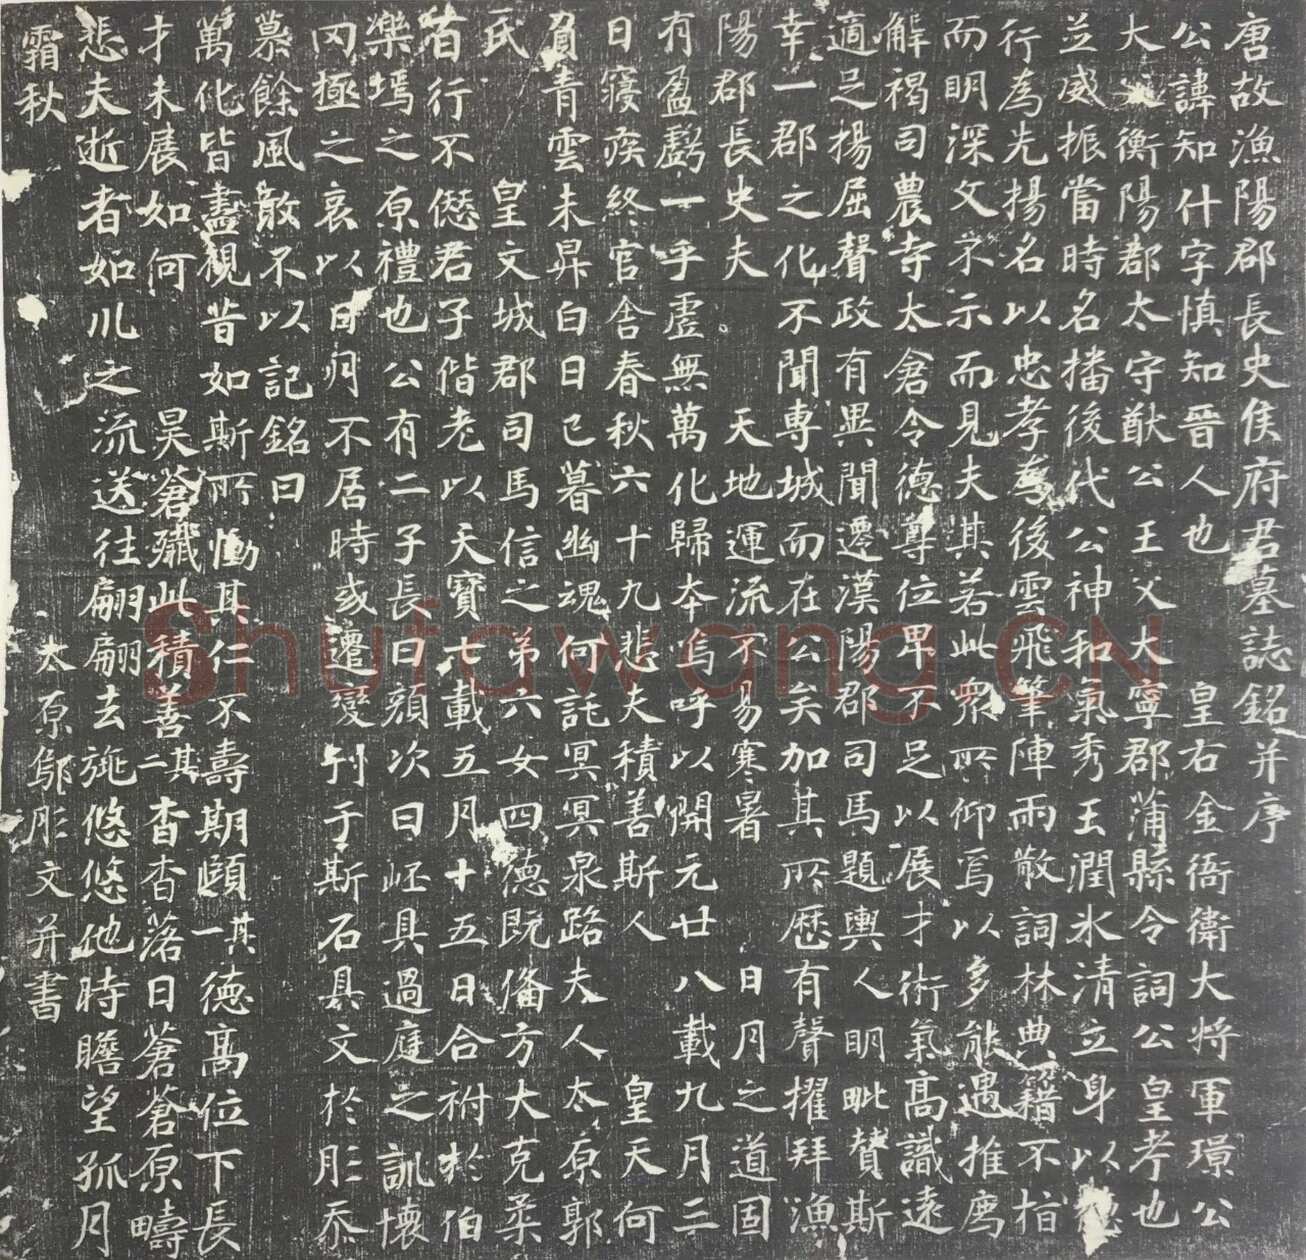 唐故漁陽郡長史侯府君墓誌銘并序
公諱知什字慎知晉人也 皇右金衙衛大将軍璟公
大父衡陽郡太守猷公王父大寧郡蒲縣令詞公皇考也
並威振當時名播後代公神和氣秀玉潤氷清立身以德
行為先揚名以忠孝為後雲飛筆陣雨散詞林典籍不棓
而明深文不示而見夫其若此衆所仰焉以多能遇推薦
解褐司農寺太倉令德尊位卑不足以展才術氣高識遠
適足揚屈聲政有異聞遷漢陽郡司馬題輿人明毗贊斯
幸一郡之化不聞專城而在公矣加其所歷有聲擢拜漁
陽郡長史夫 天地運流不易寒暑 日月之道固
有盈虧一乎虛無萬化歸夲嗚呼以開元廿八載九月三
日寢疾終官舍春秋六十九悲夫積善斯人 皇天何
負青雲未昇白日已暮幽魂何託冥冥泉路夫人太原郭
氏 皇文城郡司馬信之弟六女四德既俻方大克柔
昔行不僁君子偕老以天寶七載五月十五日合祔於伯
樂塢之原禮也公有二子長曰顔次曰岯具過庭之訓懷
罔極之哀以日月不居時或遷變刊于斯石具文於彤忝
慕餘風敢不以記銘曰
萬化皆盡視昔如斯所慟其仁不壽期頤其一德高位下長
才未展如何 昊蒼殲此積善其二杳杳落日蒼蒼原疇
悲夫逝者如川之流送往翩翩去旐悠悠他時瞻望孤月
霜秋
太原郇彤文并書
Shufawang.CN